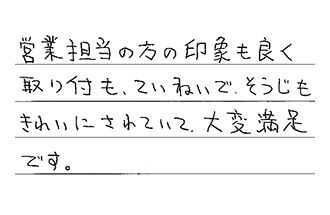 営業担当の方の印象も良く
取り付も、ていねいで、そうじも
きれいにされていて、大変満足
です。